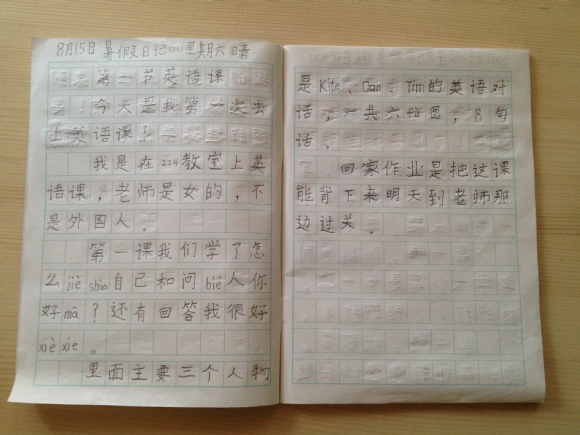 8月15日 暑假日记 星期六晴
第一节英语课
今天是我第一次去
上英语课！
我是在224教室上英
语课，老师是女的，不
是外国人。
第一课我们学了怎
么jiè shào自己和问bié人你
好mā？还有回答我很好
xiè xie。
里面主要三个人物
是Kite、Dan、Tim的英语对
话，一共六幅图，8句
话，
回家作业是把这课
能背下来明天到老师那
边过关。